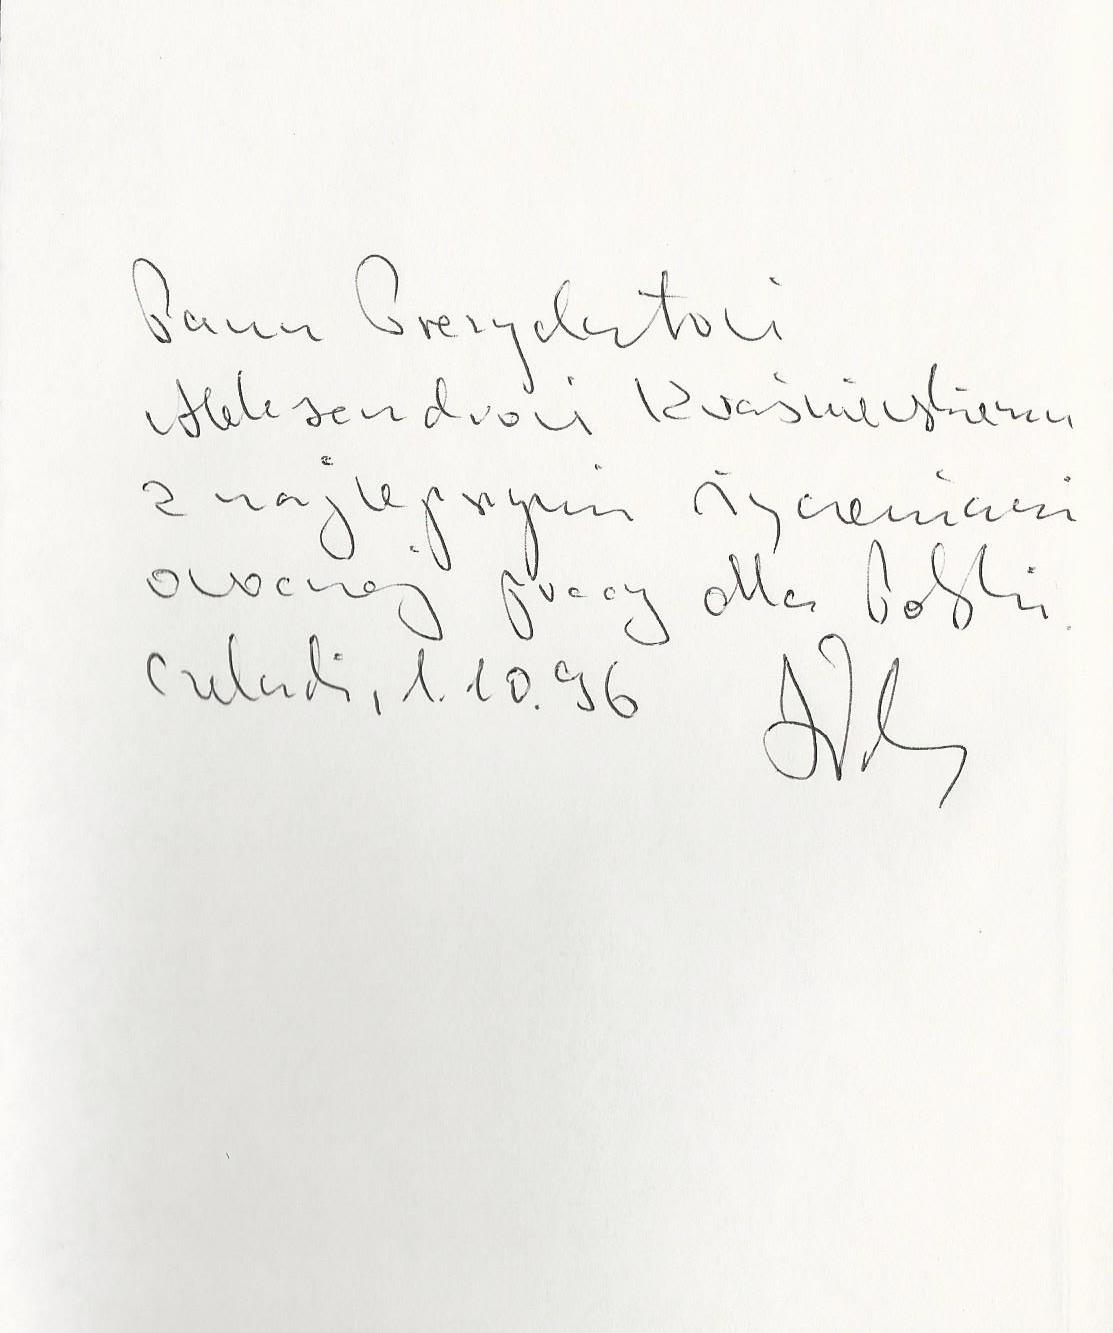 Panu Prezydentowi
Aleksandrowi Kwaśniewskiemu
z najlepszymi życzeniami
owocnej pracy dla Polski.
Czeladź, 1.10.96